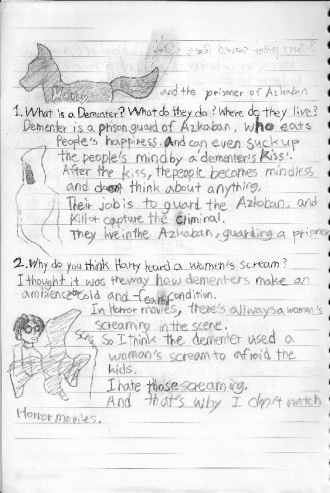 and the prisoner of Azkaban
1. What is a Dementer? What do they do? Where do they live?
Dementer is a prison guard of Azkaban, who eats
People's happiness. And can even suck up
the people's mind by a dementer's 'kiss'.
After the kiss, the people becomes mindless
and think about anything.
Their job is to guard the Azkaban, and
Kill or capture the criminal.
They live in the Azkaban, guarding a prisoner
2. Why do you think Harry heard a women's scream?
I thought it was the way how dementers make an
ambience cold and condition.
In Horror movies, there's allways a women's
screaming in the scene.
So I think the dementer used a
woman's scream to afraid the
kids.
I hate those screaming.
And that's why I don't watch
Horror movies.